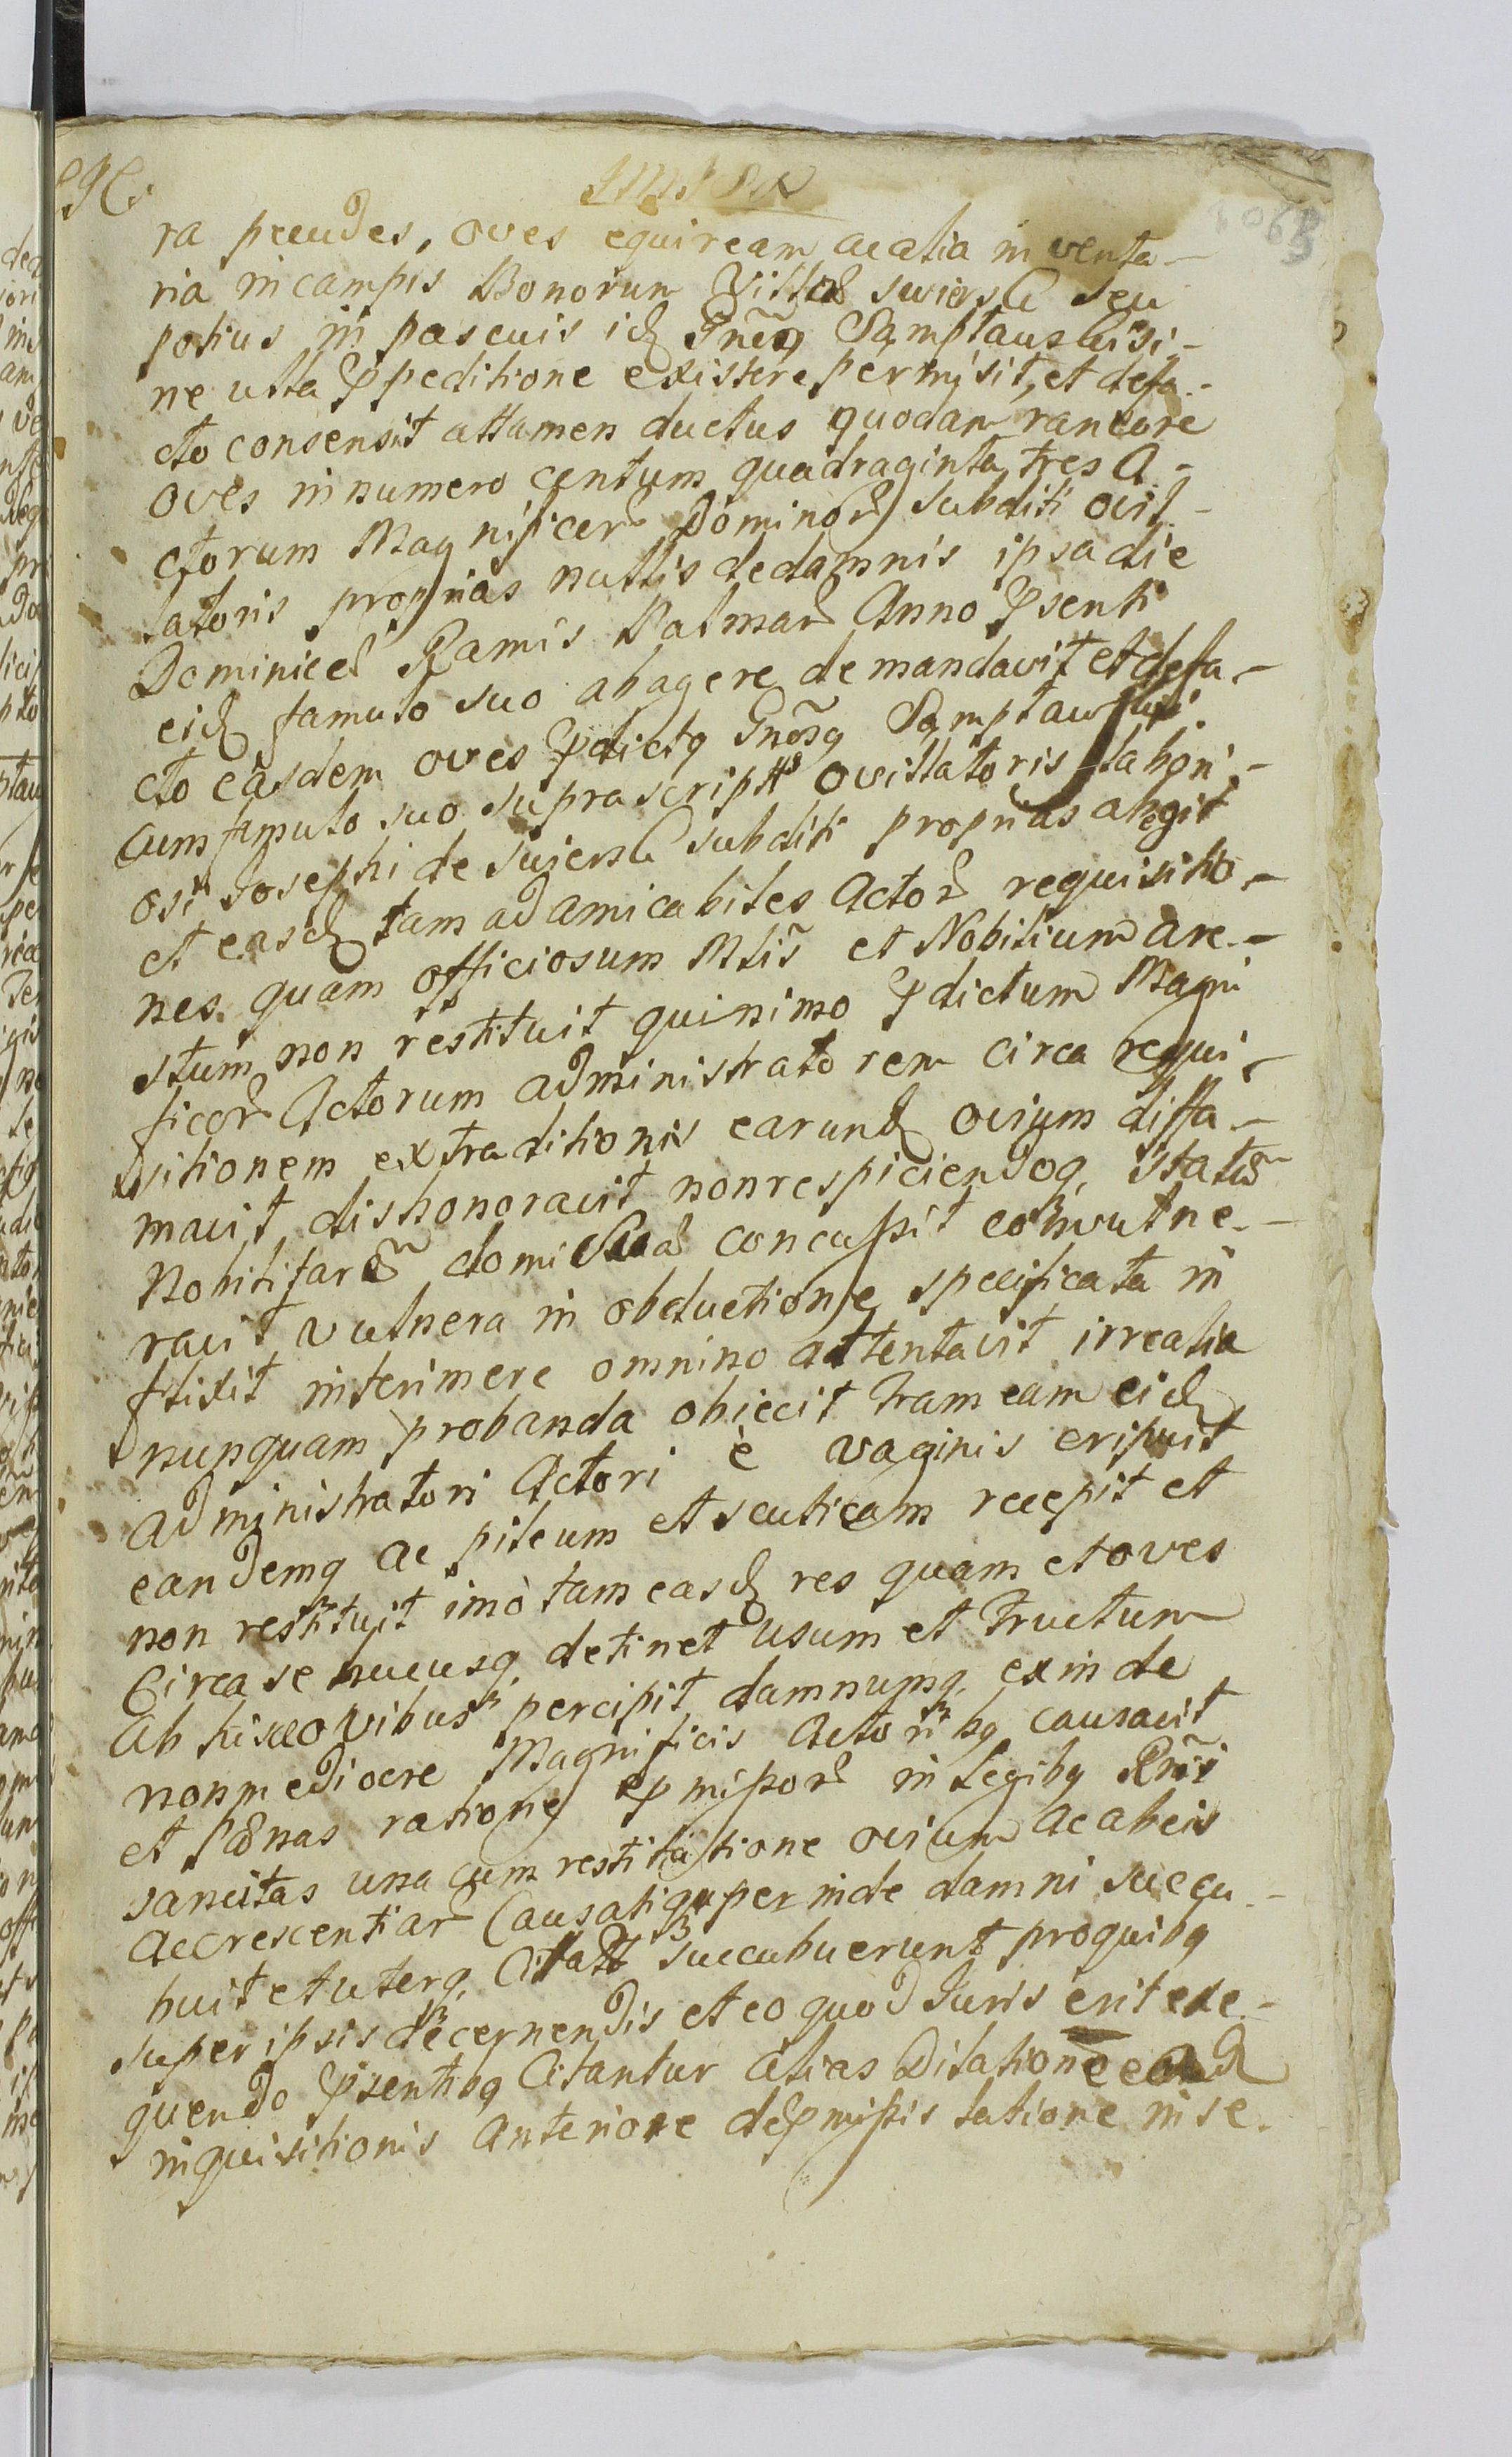 ra pecudes, oves equiream ac alia inventa-
ria in campis Bonorum Villae Swiersk seu
potius in pascuis id Gnēq si-
ne ulla ꝑpeditione existere permisit, et defa-
cto consensit attamen ductus quodam rancore
oves innumero centum quadraginta tres A-
ctorum Magnificor Dominor subditi ovil-
latoris proprias nullis dedamnis ipsa die
Dominicae Ramis Palmar Anno ꝑsenti
eid famulo suo abagere demandavit et defa-
cto easdem oves ꝑdictq Gnōsq
cum famulo suo suprascripti ovillatoris labori-
osi Josephi de Swiersk subditi proprias abegit
et easd tam ad amicabiles Actor requisitio-
nes quam officiosum Mlis et Nobilium are-
stum non restituit quinimo ꝑdictum Magni
ficor Actorum administratorem circa requi-
sitionem extraditionis earund ovium diffa-
mavit, dishonoravit nonrespiciendoq, statū
Nobilitarē domi suae concussit convulne-
ravit vulnera in obductione specificata in
flixit interimere omnino attentavit irrealia
nunquam probanda obiecit frameam eid
administratori Actori è vaginis eripuit
eandemq ac pileum et scuticam recepit et
non restituit imò tam easd res quam et oves
Circa se hucusq, detinet usum et fructum
ab hisce ovibus percipit damnumq, exinde
nonmediocre Magnificis Actoribq causavit
et Pœnas ratione ꝑmissor in Legibq Rmi
sancitas una cum restitutione ovium ac abeis
accrescentiar Causatiq, per inde damni succu-
buit et uterq, Citatt succubuerunt proquibq
super ipsis decernendis et eo quod Juris erit exe-
quendo ꝑsentibq Citantur alias Dilatione
inquisitionis anteriore deꝑmissis latione inse.